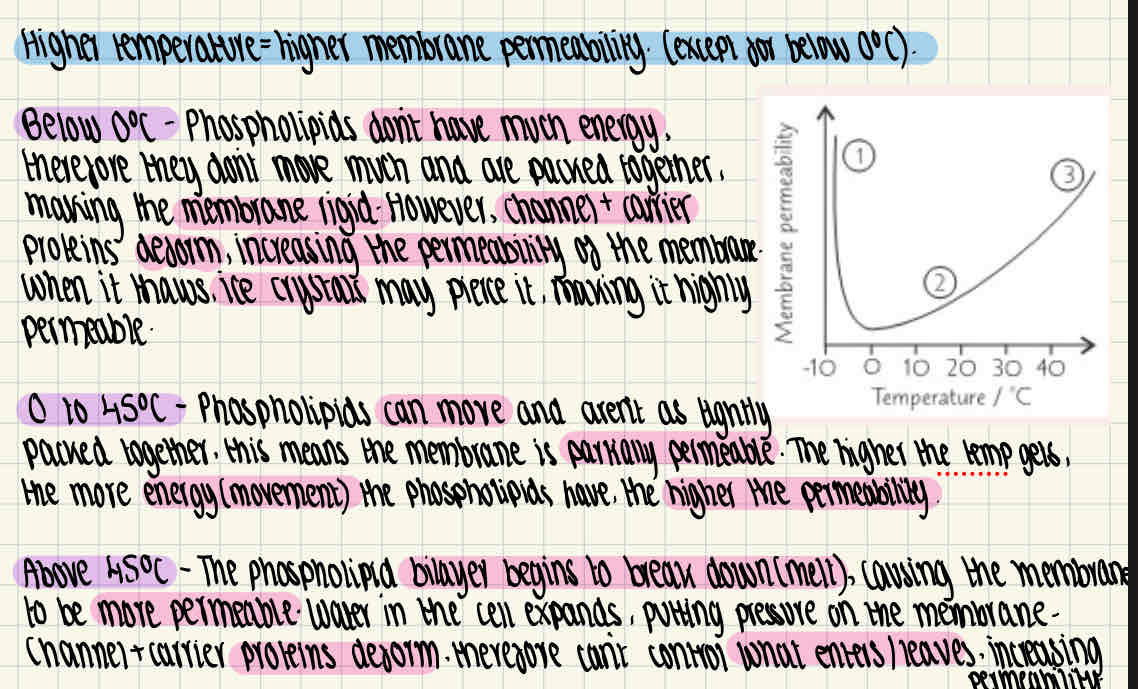 Higher temperature = higher membrane permeability. (except for below 0°C).
Below 0°C - Phospholipids don't have much energy,
therefore they don't move much and are packed together,
making the membrane rigid. However, channel + carrier
proteins deform, increasing the permeability of the membrane.
When it thaws, ice crystals may pierce it, making it highly
permeable.
Membrane permeability
1
2
3
-10 0 10 20 30 40
Temperature / °C
0 to 45°C - Phospholipids can move and aren't as tightly
packed together, this means the membrane is partially permeable. The higher the temp gets,
the more energy (movement) the phospholipids have, the higher the permeability.
Above 45°C - The phospholipid bilayer begins to break down (melt), causing the membrane
to be more permeable. Water in the cell expands, putting pressure on the membrane.
Channel + carrier proteins deform, therefore can't control what enters / leaves, increasing
permeability.